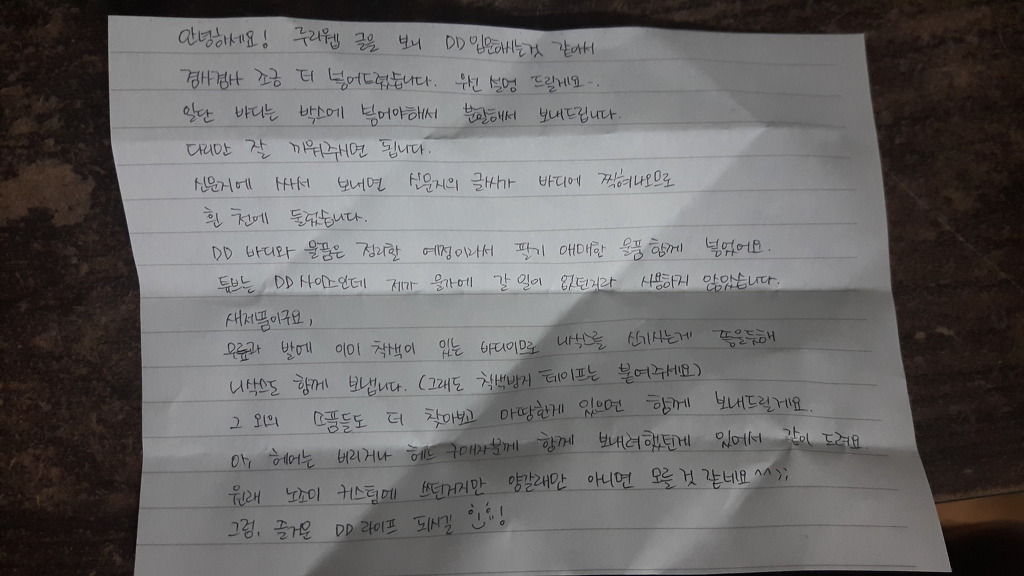 안녕하세요! 루리웹 글을 보니 DD 입문하시는것 같아서
겸사겸사 조금 더 넣어드렸습니다. 우선 설명 드릴게요~.
일단 바디는 박스에 넣어야해서 분할해서 보내드립니다.
다리만 잘 끼워주시면 됩니다.
신문지에 싸서 보내면 신문지의 글씨가 바디에 찍혀나오므로
흰 천에 둘렀습니다.
DD 바디와 물품은 정리할 예정이라서 팔기 애매한 물품 함께 넣었어요.
튜브는 DD 사이즈인데 제가 물가에 갈 일이 없던지라 사용하지 않았습니다.
새제품이구요,
무릎과 발에 이미 착색이 있는 바디이므로 니삭스를 신기시는게
니삭스도 함께 보냅니다. (그래도 착색방지 테이프는 붙여주세요)
그 외의 소품들도 더 찾아보고 마땅한게 있으면 함께 보내드릴게요.
아, 헤어는 버리거나 헤드 구매자분께 함께 보내려했던게 있어서 같이 드려요
원래 노조미 커스텀에 쓰던거지만 양갈래만 아니면 모를 것 같네요 ^^;;
그럼, 즐거운 DD 라이프 되시길